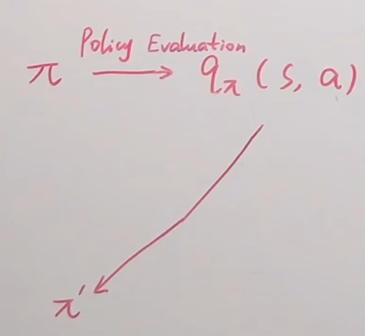 Policy Evaluation
π → q_π (s, a)
π'